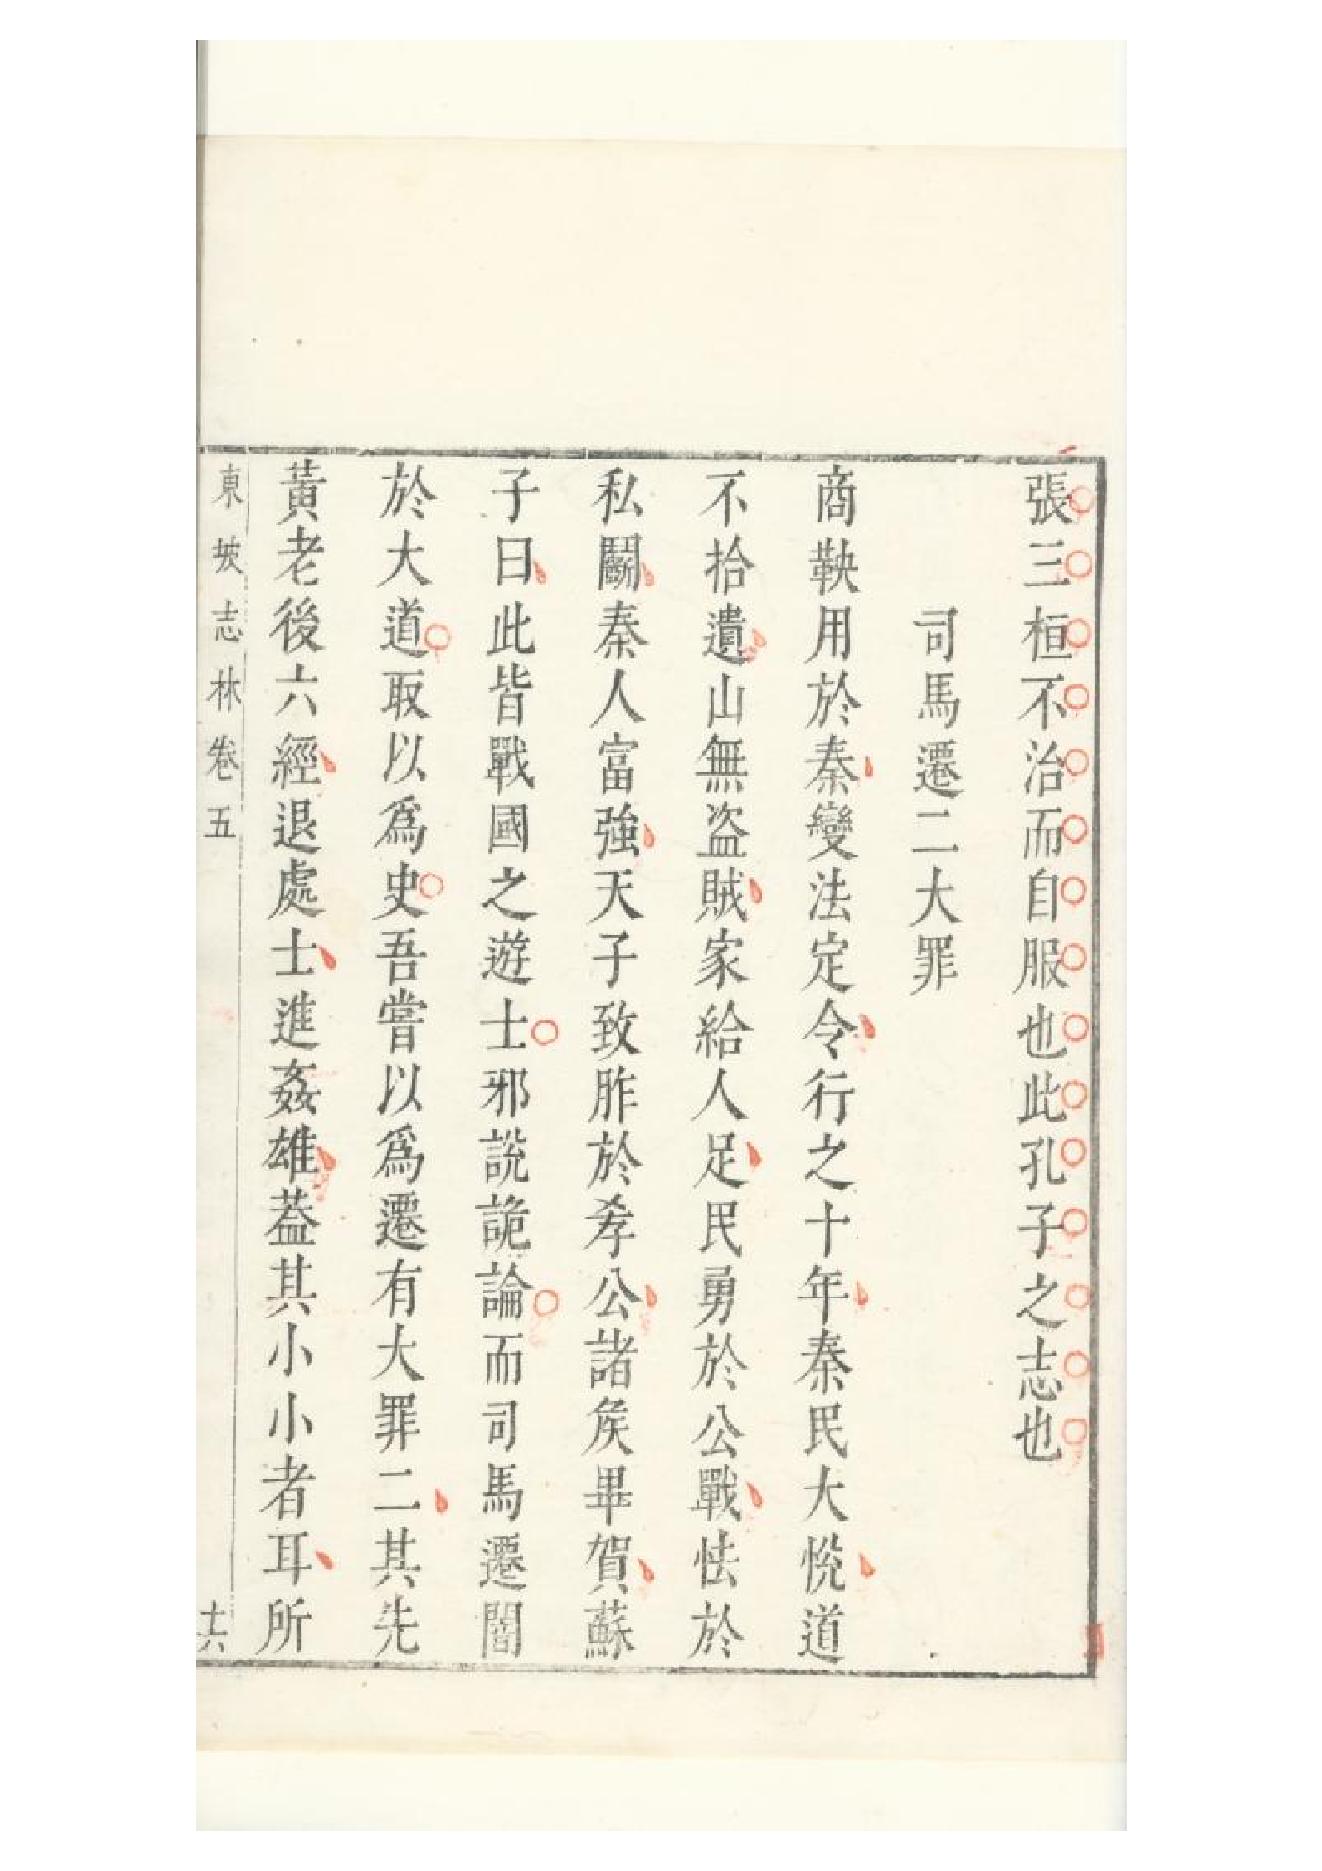 張三桓不治而自服也此孔子之志也
司馬遷二大罪
商鞅用於秦變法定令行之十年秦民大悅道
不拾遺山無盗賊家給人足民勇於公戰怯於
私鬭秦人富強天子致胙於孝公諸矦畢賀蘇
子曰此皆戰國之遊士邪說詭論而司馬遷闇
於大道取以爲史吾嘗以爲遷有大罪二其先
黃老後六經退處士進姦雄葢其小小者耳所
東坡志林卷五
十六